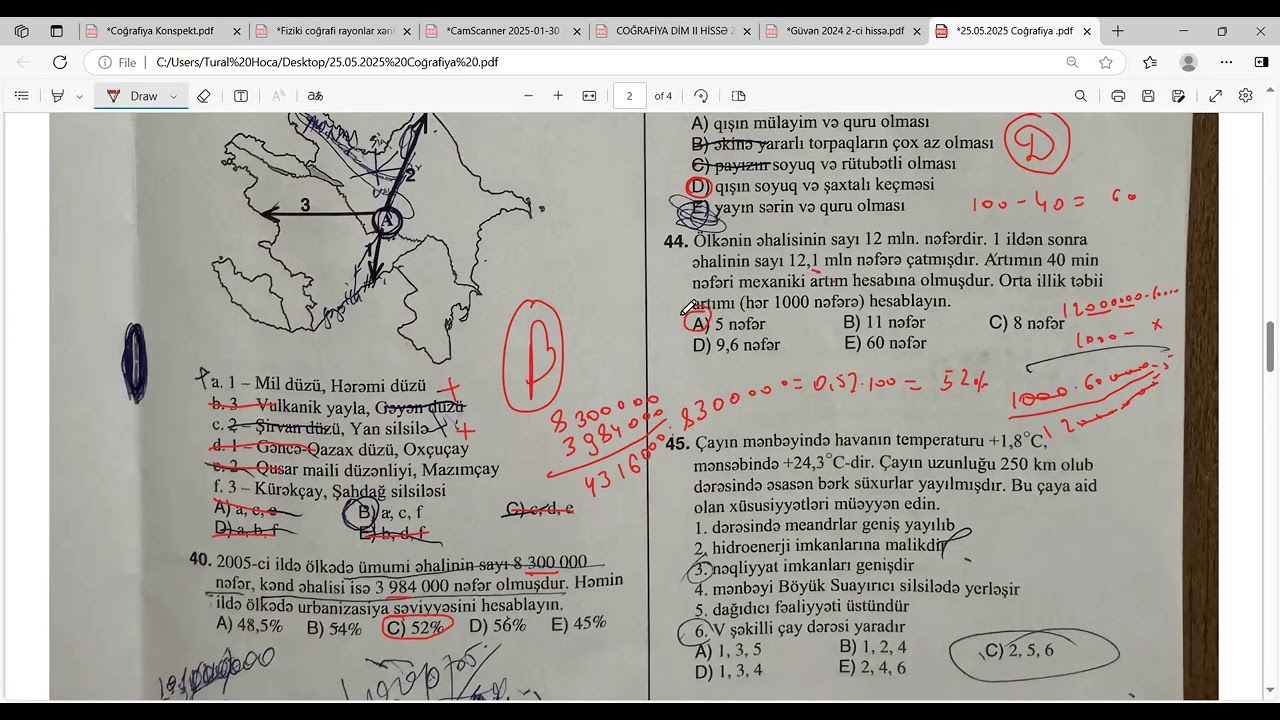 *Coğrafiya Konspekt.pdf
*Fiziki coğrafi rayonlar xəri
*CamScanner 2025-01-30
COĞRAFİYA DİM II HİSSƏ 2
*Güvən 2024 2-ci hissə.pdf
*25.05.2025 Coğrafiya .pdf
File C:/Users/Tural%20Hoca/Desktop/25.05.2025%20Coğrafiya%20.pdf
Draw
2 of 4
2
3
A
1
B
a. 1 – Mil düzü, Hərəmi düzü
b. 3 – Vulkanik yayla, Gəyən düzü
c. 2 – Şirvan düzü, Yan silsilə
d. 1 – Gəncə-Qazax düzü, Oxçuçay
e. 2 – Qusar maili düzənliyi, Mazımçay
f. 3 – Kürəkçay, Şahdağ silsiləsi
A) a, c, e B) a, c, f C) c, d, e
D) a, b, f E) b, d, f
40. 2005-ci ildə ölkədə ümumi əhalinin sayı 8 300 000
nəfər, kənd əhalisi isə 3 984 000 nəfər olmuşdur. Həmin
ildə ölkədə urbanizasiya səviyyəsini hesablayın.
A) 48,5% B) 54% C) 52% D) 56% E) 45%
8300000
3984000
4316000 : 8300000 = 0,52.100 = 52%
A) qışın mülayim və quru olması
B) əkinə yararlı torpaqların çox az olması
C) payızın soyuq və rütubətli olması
D) qışın soyuq və şaxtalı keçməsi
E) yayın sərin və quru olması
D
100 - 40 = 60
44. Ölkənin əhalisinin sayı 12 mln. nəfərdir. 1 ildən sonra
əhalinin sayı 12,1 mln nəfərə çatmışdır. Artımın 40 min
nəfəri mexaniki artım hesabına olmuşdur. Orta illik təbii
artımı (hər 1000 nəfərə) hesablayın.
A) 5 nəfər B) 11 nəfər C) 8 nəfər
D) 9,6 nəfər E) 60 nəfər
1000 - x
45. Çayın mənbəyində havanın temperaturu +1,8°C,
mənsəbində +24,3°C-dir. Çayın uzunluğu 250 km olub
dərəsində əsasən bərk süxurlar yayılmışdır. Bu çaya aid
olan xüsusiyyətləri müəyyən edin.
1. dərəsində meandrlar geniş yayılıb
2. hidroenerji imkanlarına malikdir
3. nəqliyyat imkanları genişdir
4. mənbəyi Böyük Suayırıcı silsilədə yerləşir
5. dağıdıcı fəaliyyəti üstündür
6. V şəkilli çay dərəsi yaradır
A) 1, 3, 5 B) 1, 2, 4 C) 2, 5, 6
D) 1, 3, 4 E) 2, 4, 6